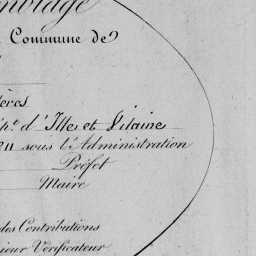 Commune de
d'Ille et Vilaine
sous l'Administration
Préfet
Maire
des Contributions
Vérificateur